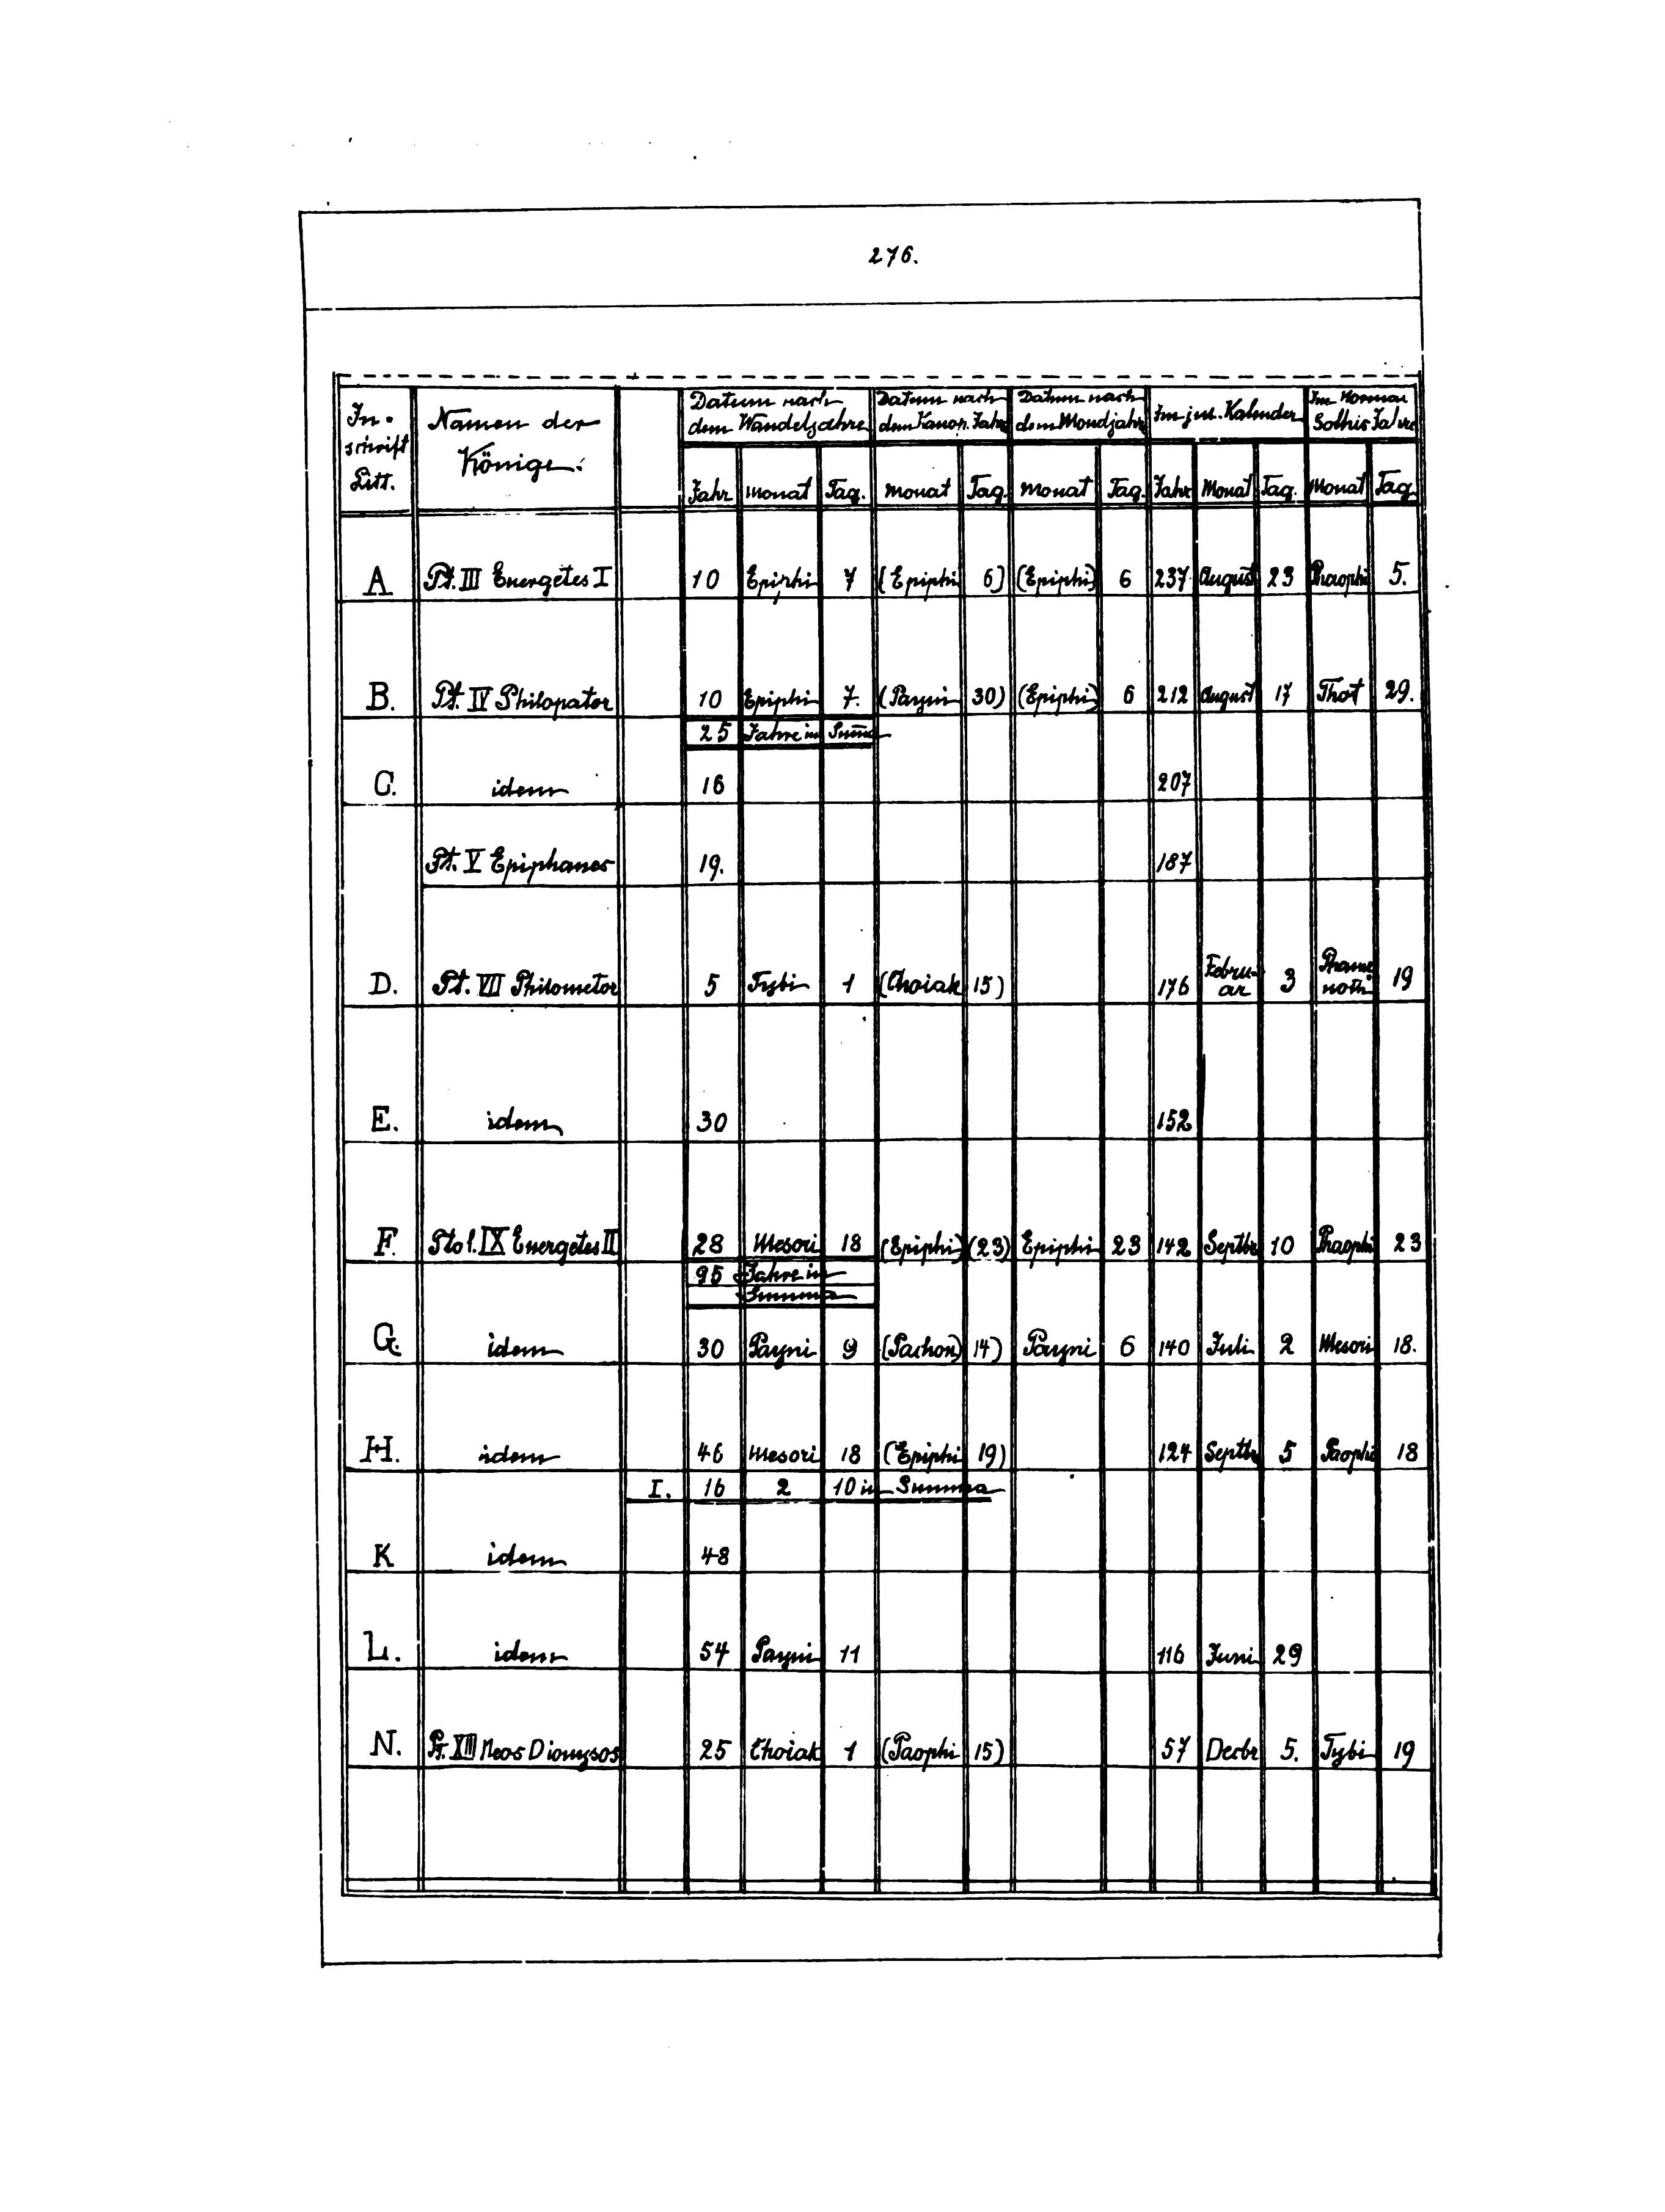 276.
In-schrift Litt. Namen der Könige. Datum nach dem Wandeljahre Datum nach dem Kanop. Jahre Datum nach dem Mondjahre Im jul. Kalender Im Normal Sothis Jahre
Jahr Monat Tag. Monat Tag. Monat Tag. Jahr Monat Tag. Monat Tag
A Pt. III Euergetes I 10 Epiphi 7 (Epiphi 6) (Epiphi) 6 237 August 23 Phaophi 5.
B. Pt. IV Philopator 10 Epiphi 7. (Payni 30) (Epiphi) 6 212 August 17 Thot 29.
25 Jahre in Summa
C. idem 16 207
Pt. V Epiphanes 19. 187
D. Pt. VII Philometor 5 Tybi 1 (Choiak 15) 176 Februar 3 Phamenoth 19
E. idem 30 152
F. Ptol. IX Euergetes II 28 Mesori 18 (Epiphi) (23) Epiphi 23 142 Septbr 10 Phaophi 23
95 Jahre in
Summa
G. idem 30 Payni 9 (Pachon) 14) Payni 6 140 Juli 2 Mesori 18.
H. idem 46 Mesori 18 (Epiphi 19) 124 Septbr 5 Paophi 18
I. 16 2 10 in Summa
K idem 48
L. idem 54 Payni 11 116 Juni 29
N. Pt. XIII Neos Dionysos 25 Choiak 1 (Paophi 15) 57 Decbr 5. Tybi 19